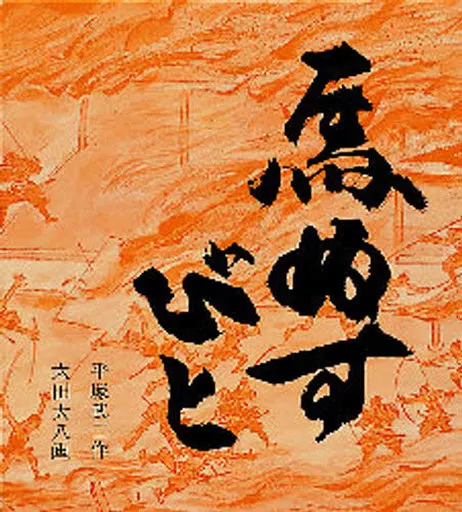 馬ぬす
びと
平塚武二 作
太田大八画